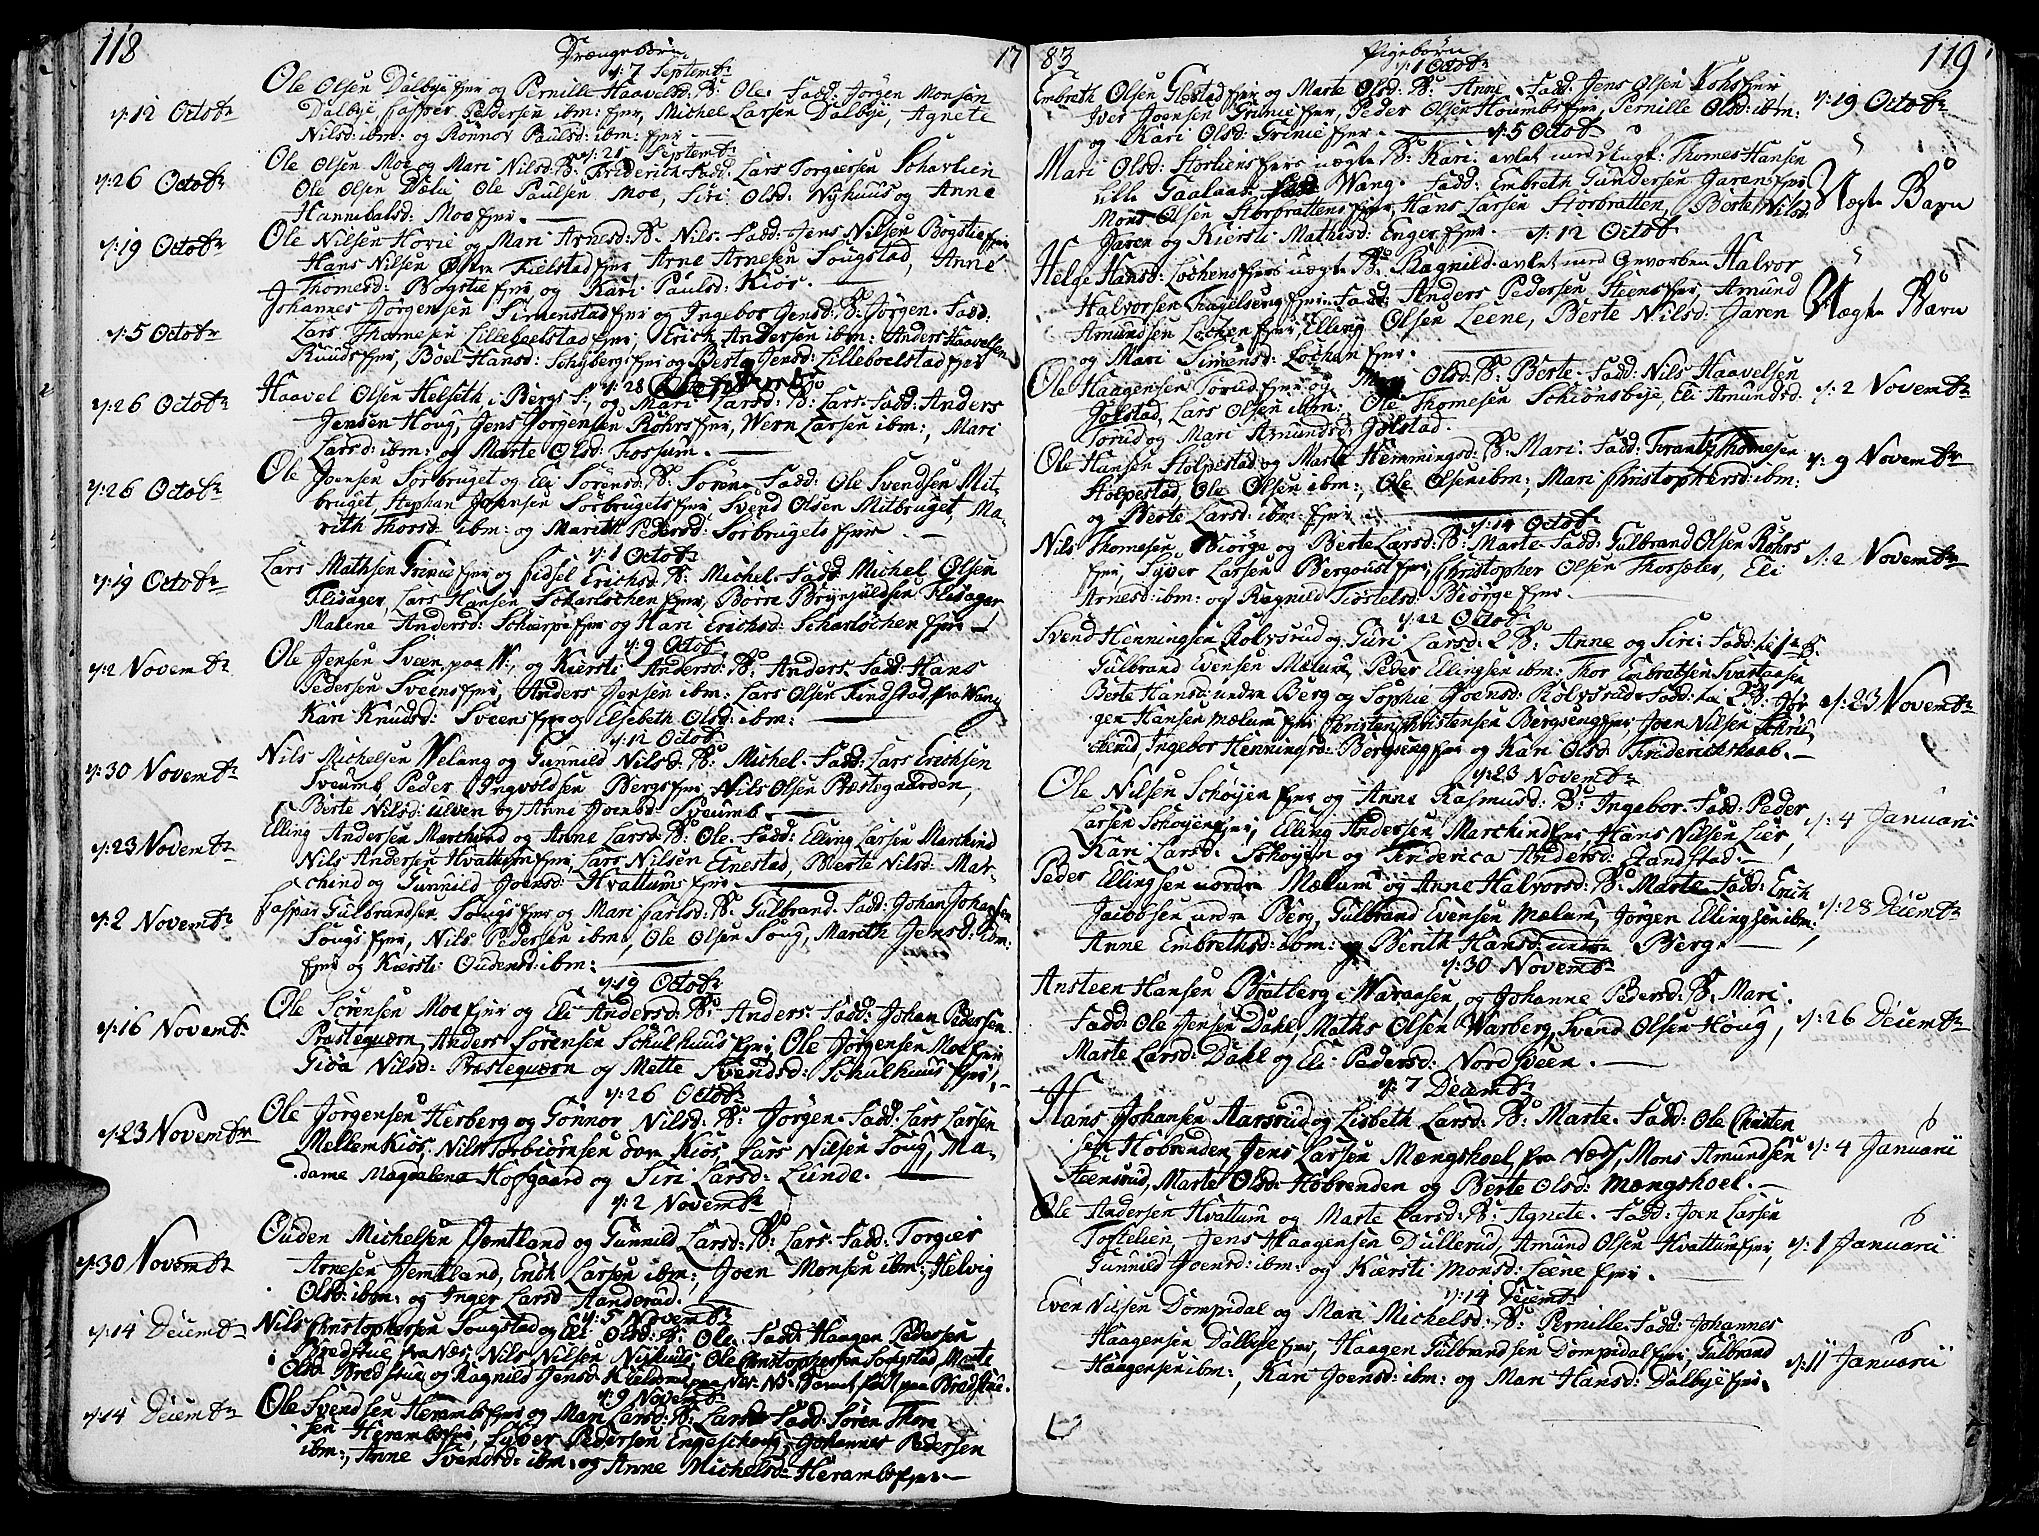 118 Drængebørn 17
d: 7 Septembr
Ole Olsen Dalbye Ejer og Pernille Haavelsd: B: Ole. Fadd: Jørgen Monsen
d: 12 Octobr Dalbye Casper Pedersen ibm: Ejer, Michel Larsen Dalbye, Agnete
Nilsd: ibm: og Rønnov Paulsd: ibm: Ejer
d: 21 Septembr
Ole Olsen Moe og Mari Nilsd: B: Friderich Fadd: Lars Torgiersen
d: 26 Octobr Ole Olsen Dælie Ole Paulsen Moe, Siri Olsd: Nyhuus og Anne
Hannibalsd: Moe Ejer.
Ole Nilsen Hovie og Mari Arnesd: B: Nils. Fadd: Jens Nilsen Bogstie Ejer
d: 19 Octobr Hans Nilsen Fielstad Ejer Arne Arnesen Songstad, Anne
Thomesd: Bogstie Ejer og Kari Paulsd: Kios.
Johannes Jørgensen Simenstad Ejer og Ingebor Jensd: B: Jørgen. Fadd:
d: 5 Octobr Lars Thomesen Lilleboelstad Ejer, Erich Andersen ibm: Anders Haavelsen
Ruuds Ejer, Boel Hansd: Schyberg Ejer og Berte Jensd: Lilleboelstad Ejer
d: 28 Septembr
Haavel Olsen Helseth i Bergs P:, og Mari Larsd: B: Lars. Fadd: Anders
d: 26 Octobr Jensen Houg, Jens Jørgensen Røhrs Ejer, Wern Larsen ibm:, Mari
Larsd: ibm: og Marte Olsd: Fossum.
Ole Joensen Sørbruget og Eli Sørensd: B: Søren. Fadd: Ole Svendsen Mit-
d: 26 Octobr bruget, Stephan Joensen Sørbrugets Ejer Svend Olsen Mitbruget, Ma-
rith Thorsd: ibm: og Marith Pedersd: Sørbrugets Ejer
d: 1 Octobr
Lars Mathsen Grinie Ejer og Sidsel Erichsd: B: Michel. Fadd: Michel Olsen
d: 19 Octobr Flisager, Lars Hansen Scharlochen Ejer, Børre Brynjulsen Flisager
Malene Andersd: Scharpe Ejer og Kari Erichsd: Scharlochen Ejer
d: 9 Octobr
Ole Jensen Sveen paa N:, og Kiersti Andersd: B: Anders. Fadd: Hans
d: 2 Novembr Pedersen Sveens Ejer, Anders Jensen ibm: Lars Olsen Findstad fra Wang
Kari Knudsd: Sveens Ejer og Elsebeth Olsd: ibm:
d: 12 Octobr
Nils Michelsen Welang og Gunnild Nilsd: B: Michel. Fadd: Lars Erichsen
d: 30 Novembr Sveumb, Peder Ingvoldsen Bergs Ejer, Nils Olsen Præstegaarden,
Berte Nilsd: Ulven og Anne Joensd: Sveumb.
Elling Andersen Marchind og Anne Larsd: B: Ole. Fadd: Elling Larsen Marchind
d: 23 Novembr Nils Andersen Hvattum Ejer, Lars Nilsen Etnestad, Berte Nilsd: Mar-
chind og Gunnild Joensd: Hvattums Ejer
Casper Gulbrandsen Sougs Ejer og Mari Carlsd: B: Gulbrand. Fadd: Johan Johansen
d: 2 Novembr Sougs Ejer, Nils Pedersen ibm:, Ole Olsen Soug, Marith Jensd: ibm:
Ejer og Kiersti Oudensd: ibm:
d: 19 Octobr
Ole Sørensen Moe Ejer og Eli Andersd: B: Anders. Fadd: Johan Pedersen
d: 16 Novembr Præstequærn, Anders Sørensen Schulhuus Ejer, Ole Jørgensen Moe Ejer
Gioa Nilsd: Præstequærn og Mette Svendsd: Schulhuus Ejer,
d: 26 Octobr
Ole Jørgensen Herberg og Gønnor Nilsd: B: Jørgen. Fadd: Lars Larsen
d: 23 Novembr Mellem Kios, Nils Torbiørnsen Kios, Lars Nilsen Soug, Ma-
dame Magdalena Hofgaard og Siri Larsd: Lunde.
d: 2 Novembr
Ouden Michelsen Jemtland og Gunnild Larsd: B: Lars. Fadd: Torgier
d: 30 Novembr Arnesen Jemtland, Erich Larsen ibm:, Joen Monsen ibm:, Helvig
Olsd: ibm: og Inger Larsd: Aanderud.
d: 5 Novembr
d: 14 Decembr Nils Christophersen Sougstad og Eli Olsd: B: Ole. Fadd: Haagen Pedersen
Bredstue fra Næs, Nils Nilsen Nyhuus, Ole Christophersen Sougstad, Marte
Olsd: Bredstue og Ragnild Jensd:
d: 9 Novembr
d: 14 Decembr Ole Svendsen Herambs Ejer og Mari Larsd: B: Lars. Fadd: Søren Thor-
sen Herambs Ejer, Syver Pedersen Engeschoug, Johannes Pedersen
ibm:, Anne Svendsd: ibm: og Anne Michelsd: Herambs Ejer
83 Pigebørn 119
d: 1 Octobr
Embreth Olsen Glestad Ejer og Marte Olsd: B: Anne. Fadd: Jens Olsen Ejer
Iver Joensen Grinie Ejer, Peder Olsen Houmbs Ejer, Pernille Olsd: ibm: d: 19 Octobr
og Kari Olsd: Grinie Ejer
d: 5 Octobr
Mari Olsd: Storliens Ejers uægte B: Kari. avlet med Ungk: Thomes Hansen
Lille Gaalaas Wang. Fadd: Embreth Gundersen Jaren Ejer Uægte Barn
Mons Olsen Storbrattens Ejer, Hans Larsen Storbratten, Berte Nilsd:
Jaren og Kiersti Mathisd: Enger Ejer. d: 12 Octobr
Helge Hansd: Lochens Ejers uægte B: Ragnild. avlet med Gevorben Halvor
Halvorsen Ejer. Fadd: Anders Pedersen Steens Ejer, Amund Uægte Barn
Amundsen Lochen Ejer, Elling Olsen Leene, Berte Nilsd: Jaren
og Mari Simensd: Lochen Ejer.
Ole Haagensen Torud Ejer og Olsd: B: Berte. Fadd: Nils Haavelsen
Jølstad, Lars Olsen ibm:, Ole Thomesen Schionsbye, Eli Amundsd: d: 2 Novembr
Torud og Mari Amundsd: Jølstad.
Ole Hansen Stolpestad og Marte Hemmingsd: B: Mari. Fadd: Frantz Thomesen
Stolpestad, Ole Olsen ibm:, Ole Olsen ibm:, Mari Christophersd: ibm: d: 9 Novembr
og Berte Larsd: ibm: Ejer
d: 14 Octobr
Nils Thomesen Biørge og Berte Larsd: B: Marte. Fadd: Gulbrand Olsen Røhrs
Ejer, Syver Larsen Bergoust Ejer, Christopher Olsen Thorsæter, Eli d: 2 Novembr
Arnesd: ibm: og Ragnild Kiøstelsd: Biørge Ejer.
d: 22 Octobr
Svend Henningsen Rolvsrud og Guri Larsd: 2 B: Anne og Siri. Fadd: til 1te B:
Gulbrand Evensen Mælum, Peder Ellingsen ibm: Thor Embretsen Svartaasen
Berte Hansd: undre Berg og Sophie Joensd: Rolvsrud. Fadd: til 2 B: Jør- d: 23 Novembr
gen Hansen Mælum Ejer, Christen Christensen Bergseng Ejer, Joen Nilsen
Ingebor Henningsd: Bergseng Ejer og Kari Olsd: Friderichskaab.
d: 23 Novembr
Ole Nilsen Schøyen Ejer og Anne Rasmusd: B: Ingebor. Fadd: Peder
Larsen Schøyen Ejer, Elling Andersen Marchind Ejer, Hans Nilsen Lier, d: 4 Januarii
Kari Larsd: Schøyen og Friderica Andersd: Sandstad.
Peder Ellingsen nordre Mælum og Anne Halvorsd: B: Marte. Fadd: Erich
Jacobsen undre Berg, Gulbrand Evensen Mælum, Jørgen Ellingsen ibm:, d: 28 Decembr
Anne Embrethsd: ibm: og Berith Hansd: undre Berg.
d: 30 Novembr
Ansteen Hansen Bratberg i Waraasen, og Johanne Pedersd: B: Mari.
Fadd: Ole Jensen Dahl, Maths Olsen Warberg, Svend Olsen Houg, d: 26 Decembr
Marte Larsd: Dahl og Eli Pedersd: Nordsveen.
d: 7 Decembr
Hans Johansen Aarsrud og Lisbeth Larsd: B: Marte. Fadd: Ole Christen-
sen Høbrenden, Jens Larsen Mængshoel fra Næs, Mons Amundsen d: 4 Januarii
Steensrud, Marte Olsd: Høbrenden og Berte Olsd: Mængshoel.
Ole Andersen Hvattum og Marte Larsd: B: Agnete. Fadd: Joen Larsen
Toftelien, Jens Haagensen Dullerud, Amund Olsen Hvattum Ejer, d: 1 Januarii
Gunnild Joensd: ibm: og Kiersti Monsd: Leene Ejer.
d: 14 Decembr
Even Nilsen Dompidal og Mari Michelsd: B: Pernille. Fadd: Johannes
Haagensen Dalbye Ejer, Haagen Gulbrandsen Dompidal Ejer, Gulbrand
Haagensen ibm:, Kari Joensd: ibm: og Mari Hansd: Dalbye Ejer. d: 11 Januarii